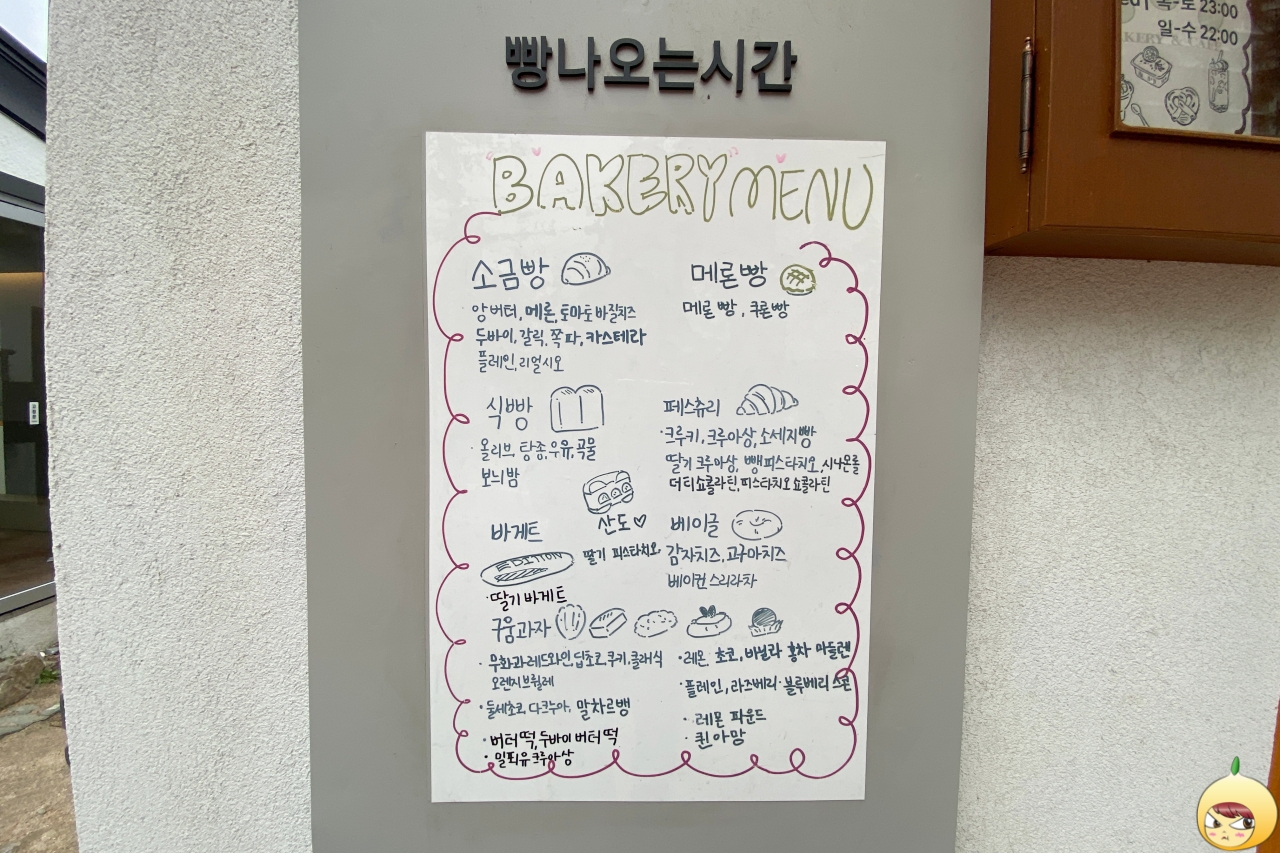 빵나오는시간
목-토 23:00
일-수 22:00
BAKERY MENU
소금빵
앙버터, 메론, 토마토바질치즈
두바이, 갈릭, 쪽파, 카스테라
플레인, 리얼시오
메론빵
메론빵, 쿠론빵
식빵
·올리브, 탕종, 우유, 곡물
보늬밤
페스츄리
·크루키, 크루아상, 소세지빵
딸기 크루아상, 뺑피스타치오, 시나몬롤
더티쇼콜라틴, 피스타치오 쇼콜라틴
산도♡
딸기 피스타치오
바게트
EDITION
·딸기 바게트
베이글
감자치즈, 고구마치즈
베이컨 스리라차
구움과자
·무화과레드와인, 딥초코, 쿠키, 클래식
오렌지브륄레
·둘세초코, 다크누아, 말차르뱅
·버터떡, 두바이 버터떡
·밀푀유크루아상
·레몬, 초코, 바닐라 홍차 마들렌
·플레인, 라즈베리·블루베리 스콘
·레몬 파운드
·퀸아망